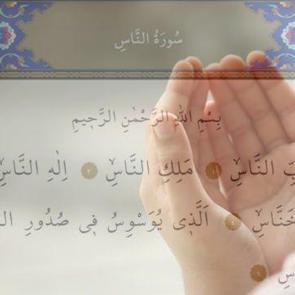 سُورَةُ النَّاسِ
بِسْمِ اللّٰهِ الرَّحْمٰنِ الرَّحٖيمِ
النَّاسِۙ ﴿١﴾ مَلِكِ النَّاسِۙ ﴿٢﴾ اِلٰهِ النَّاسِ
اَلَّذٖى يُوَسْوِسُ فٖى صُدُورِ